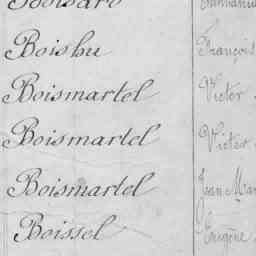 Boishu François
Boismartel Victor
Boismartel Victor
Boismartel Jean Mar
Boissel Eugène